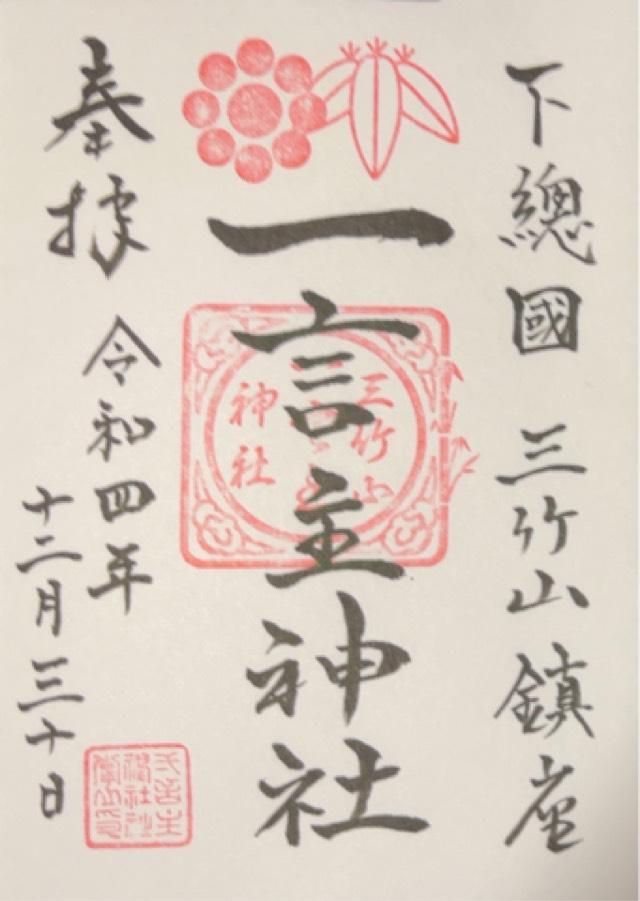 下總國 三竹山鎮座
一言主神社
三竹山
神社
奉拝
令和四年
十二月三十日